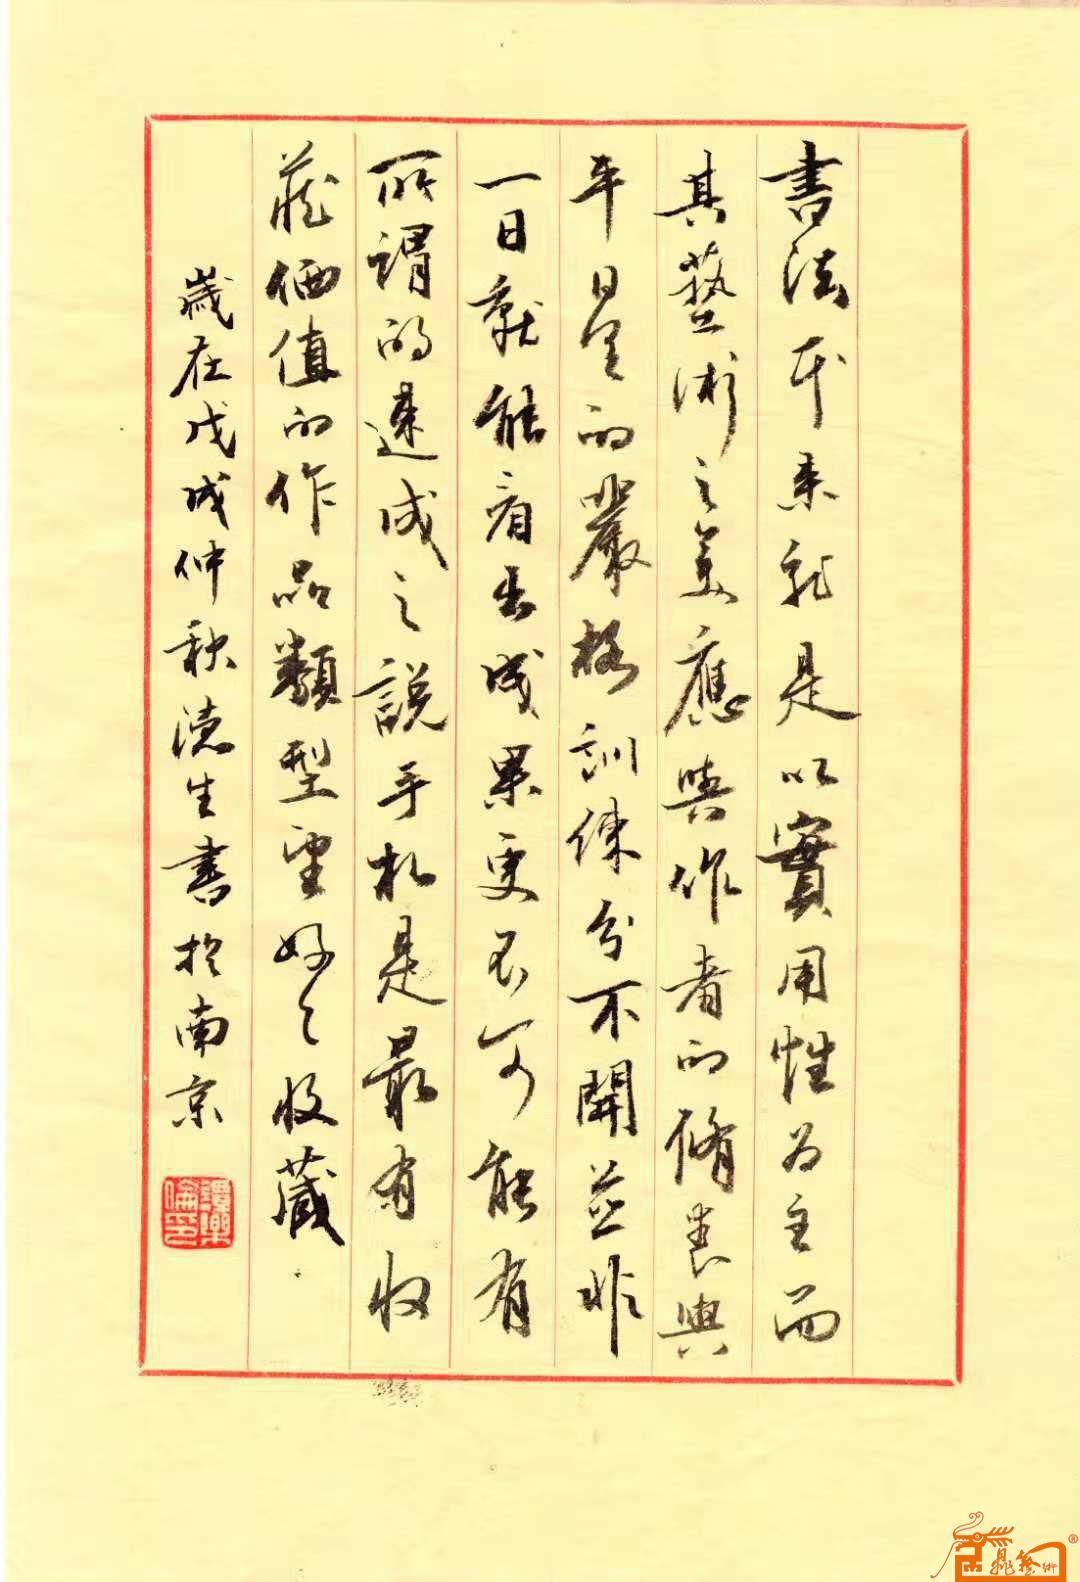 書法本来就是以實用性为主而
其藝術之美應與作者的脩养與
平日里的嚴格訓練分不開並非
一日就能看出成果更不可能有
所謂的速成之説手札是最有收
藏価值的作品類型望好々收藏
歲在戊戌仲秋德生書於南京